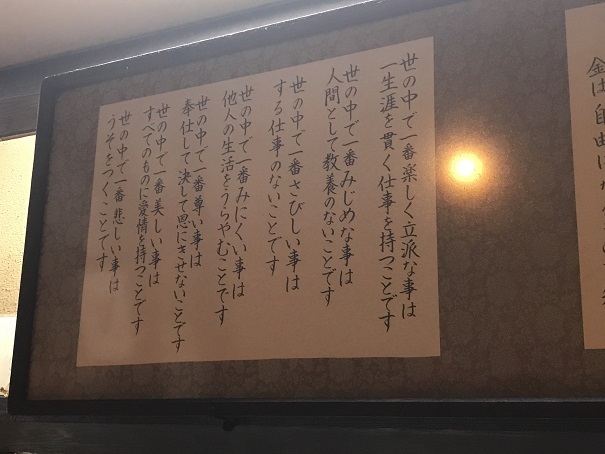 世の中で一番楽しく立派な事は
一生涯を貫く仕事を持つことです
世の中で一番みじめな事は
人間として教養のないことです
世の中で一番さびしい事は
する仕事のないことです
世の中で一番みにくい事は
他人の生活をうらやむことです
世の中で一番尊い事は
奉仕して決して恩にきせないことです
世の中で一番美しい事は
すべてのものに愛情を持つことです
世の中で一番悲しい事は
うそをつくことです
金は自由に